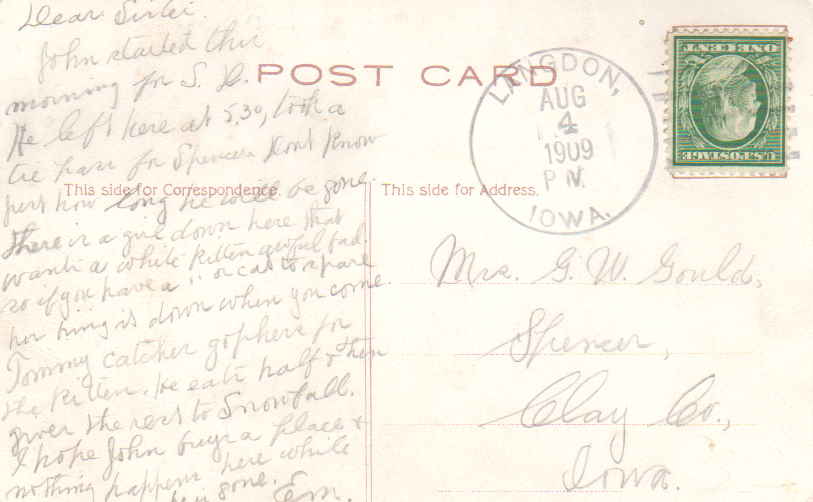 Dear Sister.
John started this
morning for S. D.
He left here at 5.30, took a
tie pass for Spencer Dont know
just how long he will be gone.
There is a girl down here that
wants a white kitten awful bad.
so if you have a " or cat to spare
her bring it down when you come.
Tommy catches gophers for
the kitten. He eats half & then
gives the rest to Snowball.
I hope John buys a place &
nothing happens here while
he is gone. Em.
POST CARD
This side for Correspondence.
This side for Address.
LANGDON,
AUG
4
1909
P M.
IOWA.
ONE CENT
U.S. POSTAGE
Mrs. G. W. Gould,
Spencer,
Clay Co.,
Iowa.